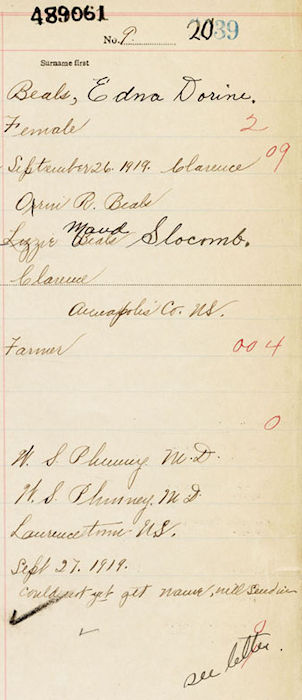 489061
No. 9 2039
Surname first
Beals, Edna Dorine.
Female 2
September 26. 1919. Clarence 09
Orrin R. Beals
Maud
Lizzie Beals Slocomb.
Clarence
Annapolis Co. NS.
Farmer 004
0
W. S. Phinney M.D.
W. S. Phinney M.D
Laurencetown N.S.
Sept 27. 1919.
Could not yet get name, will send in
see letter.